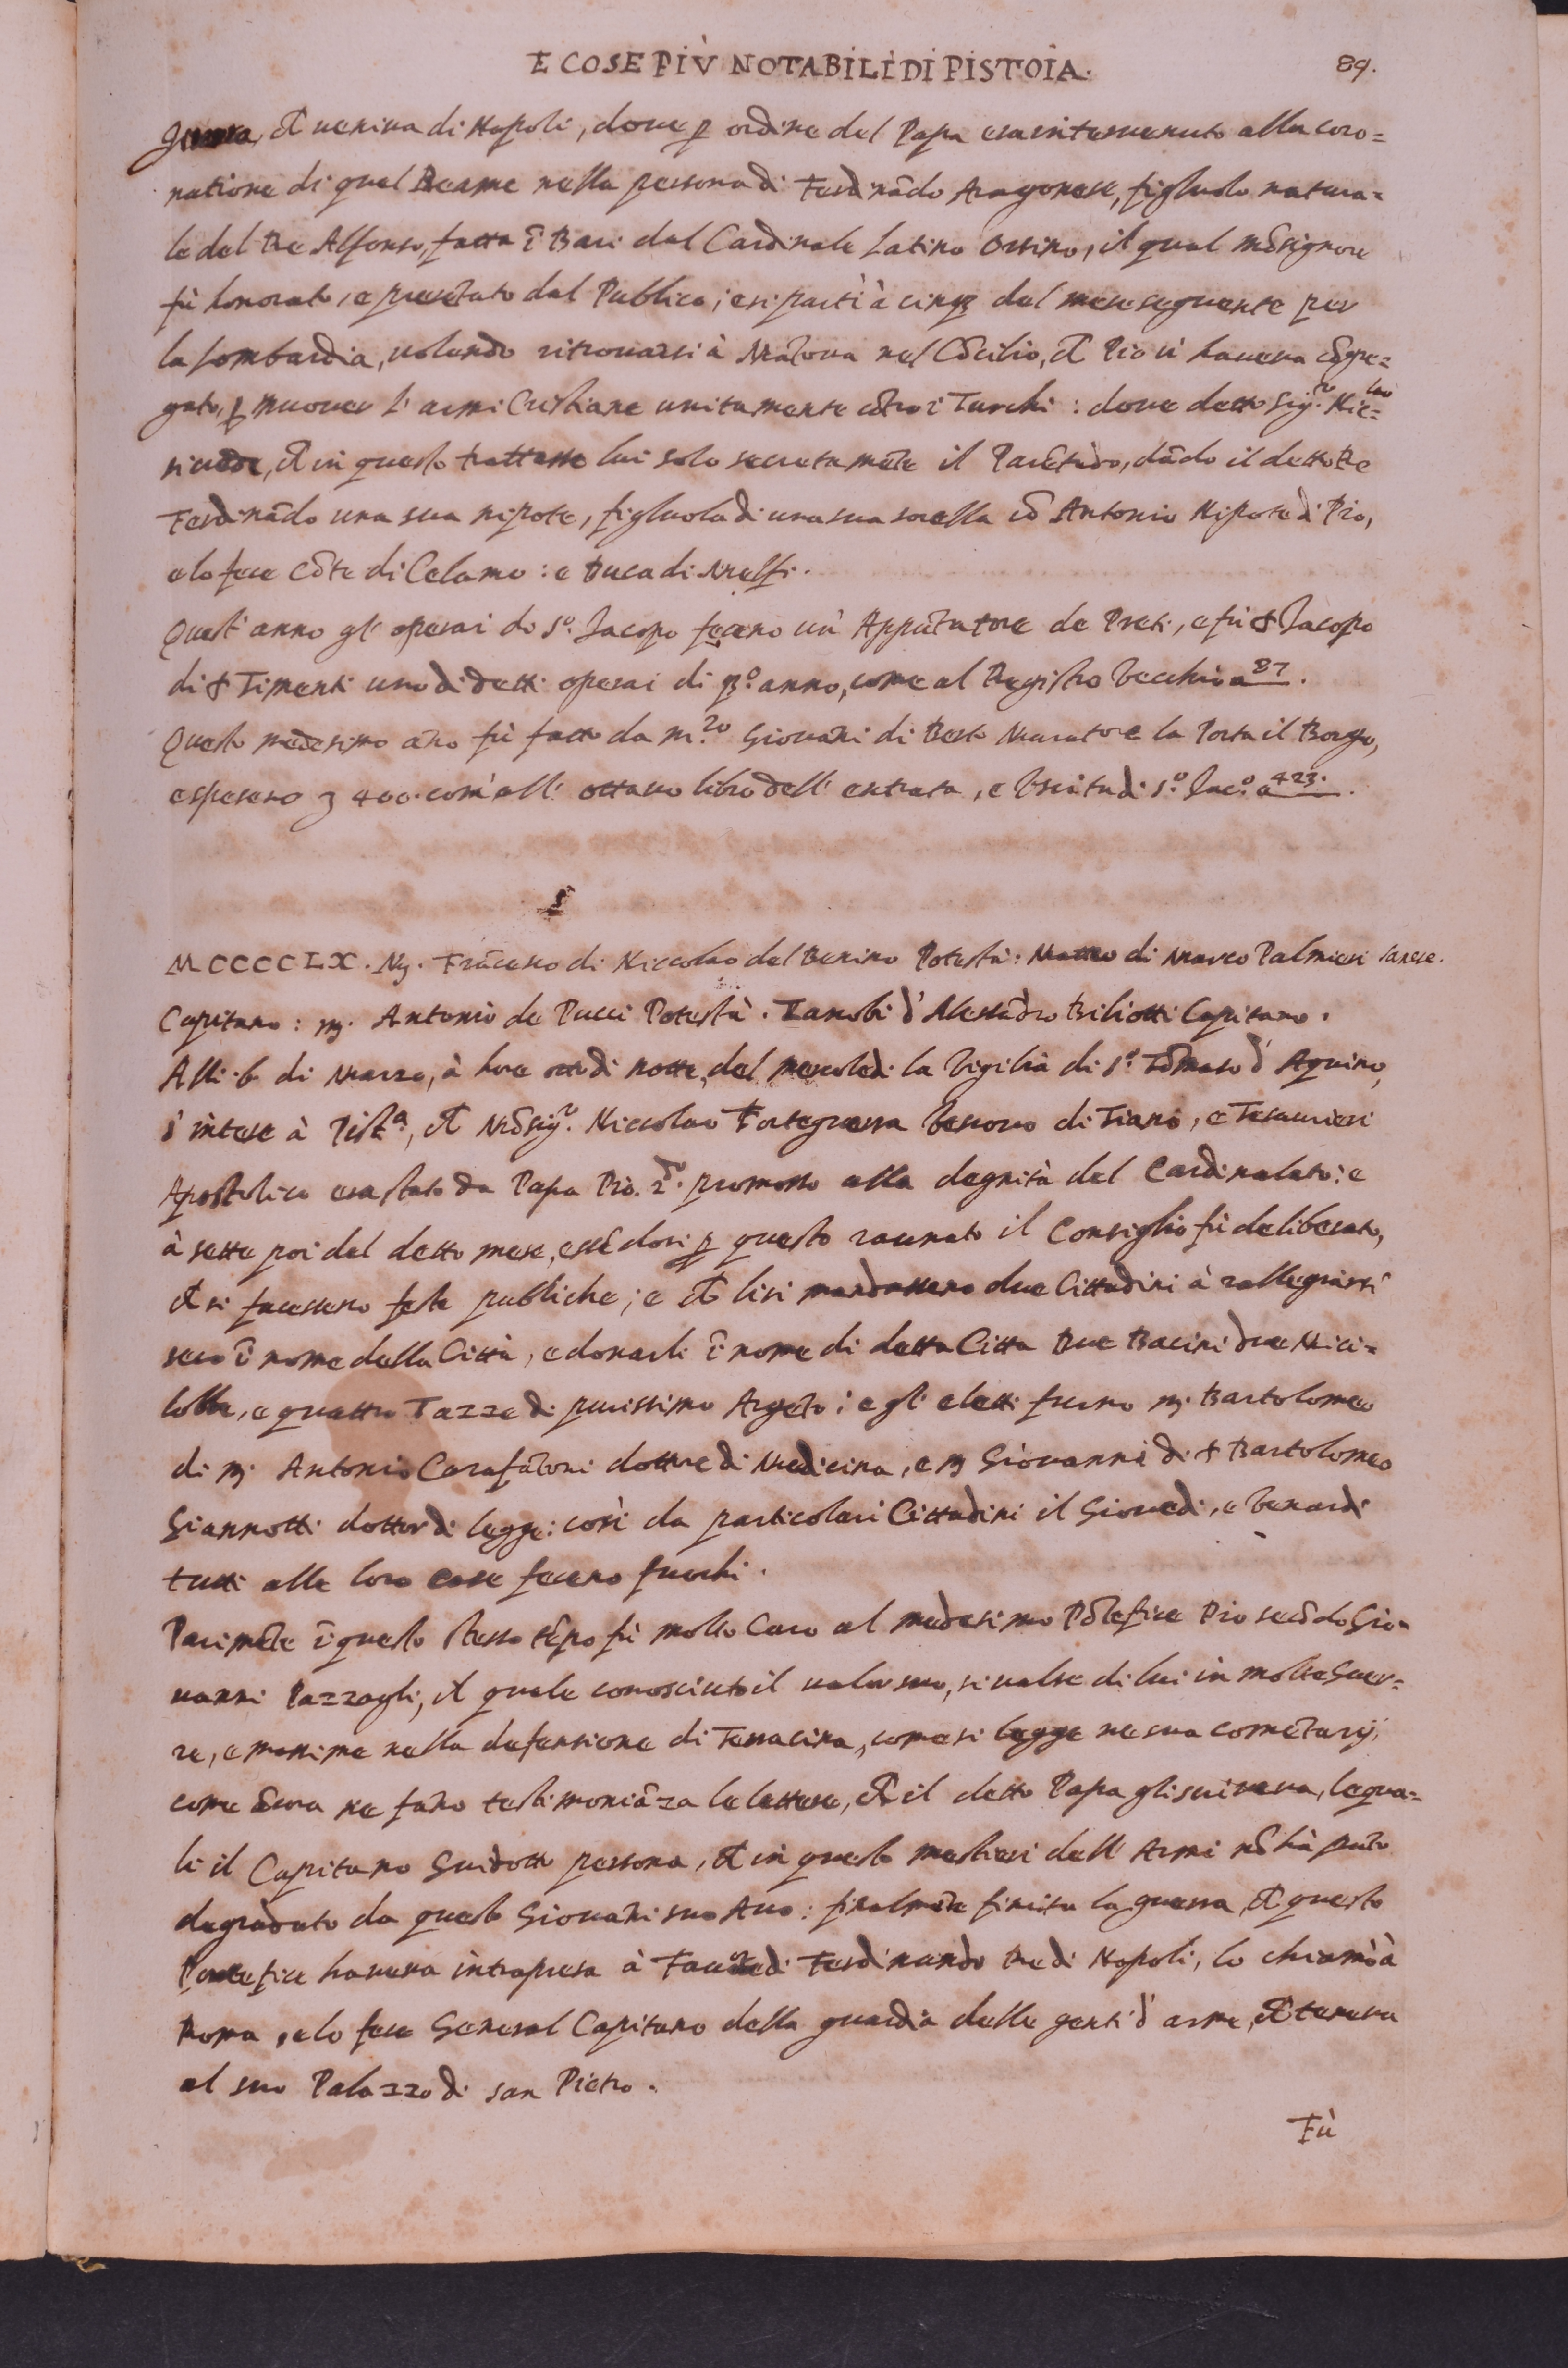 E COSE PIÙ NOTABILI DI PISTOIA. 89.
guerra, ch̃ ueniua di Napoli, doue p ordine del Papa era interuenuto alla coro=
natione di quel Reame nella persona di Ferdinãdo Aragonese, figluolo natura=
le del Re Alfonso, fatta ĩ Bari dal Cardinale Latino Orsino, il qual mõsignore
fù honorato, e presẽtato dal Publico; e si partì à cinq; del mese seguente per
la Lombardia, uolendo ritrouarsi à Mãtoua nel Cõcilio, ch̃ Pio ui haueua cõgre=
gato, p muouer l'armi Cristiane unitamente cõtro i Turchi: doue detto Sig.re Nic=lao
risiedè, ch̃ in questo trattasse lui solo secretamẽte il Parẽtado, dãdo il detto Re
Ferdinãdo una sua nipote, figluola di una sua sorella cõ Antonio Nipote di Pio,
e lo fece Cõte di Celamo: e Duca di Melfi.
Quest'anno gl'operai di S.o Jacopo feceno un' Appũtatore de Preti, e fù s Jacopo
di s Timenti uno di detti operai di q.o anno, come al Registro Vecchio a 87.
Questo medesimo ãno fù fatto da m.ro Giouãni di Berto Muratore la Porta il Borgo,
e speseno ʒ 400. com'all' ottauo libro dell' entrata, e Vscita di S.o Jac.o a 423.
MCCCCLX. M. Frãcesco di Niccolao del Benino Potestà: Matteo di Marco Palmieri
Capitano: m. Antonio de Pucci Potestà. Zanobi d'Alessãdro Biliotti Capitano.
Alli .6. di Marzo, à hore otto di notte, del mercoledì la Vigilia di S.o Tõmaso d'Aquino,
s'intese à Pist.a, ch̃ Mõsig.r Niccolao Forteguerra Vescouo di Tiano, e Tesaurieri
Apostolico era stato da Papa Pio. 2.do promosso alla degnità del Cardinalato: e
à sette poi del detto mese, essẽdosi p questo raunato il Consiglio fù deliberato,
ch̃ si facesseno feste publiche; e ch̃ li si mandasseno due Cittadini à rallegrarsi
seco ĩ nome della Città, e donarli ĩ nome di detta Citta Due Bacini due Mici=
lobbe, e quattro Tazze di purissimo Argẽto: e gl'eletti furno m. Bartolomeo
di m. Antonio Carafãtoni dottore di Medicina, e m Giouanni di s Bartolomeo
Giannotti dottor di legge: così da particolari Cittadini il Giouedì, e Venardì
tutti alle loro case feceno fuochi.
Parimẽte ĩ questo stesso tẽpo fù molto Caro al medesimo Põtefice Pio secõdo Gio=
uanni Pazzagli, il quale conosciuto il ualor suo, si ualse di lui in molte Guer=
re, e massime nella defensione di Terracina, come si legge ne sua comẽtarij,
come ãcora ne fãno testimoniãza le lettere, ch̃ il detto Papa gli scriueua, lequa=
li il Capitano Guidotto persona, ch̃ in questo mestieri dell' Armi nõ hà pũto
degradato da questo Giouãni suo Auo: finalmẽte finita la guerra ch̃ questo
Pontefice haueua intrapresa à Fauore di Ferdinando Re di Napoli, lo chiamò à
Roma, e lo fece General Capitano della guardia delle genti d'arme, ch̃ teneua
al suo Palazzo di san Pietro.
Fù